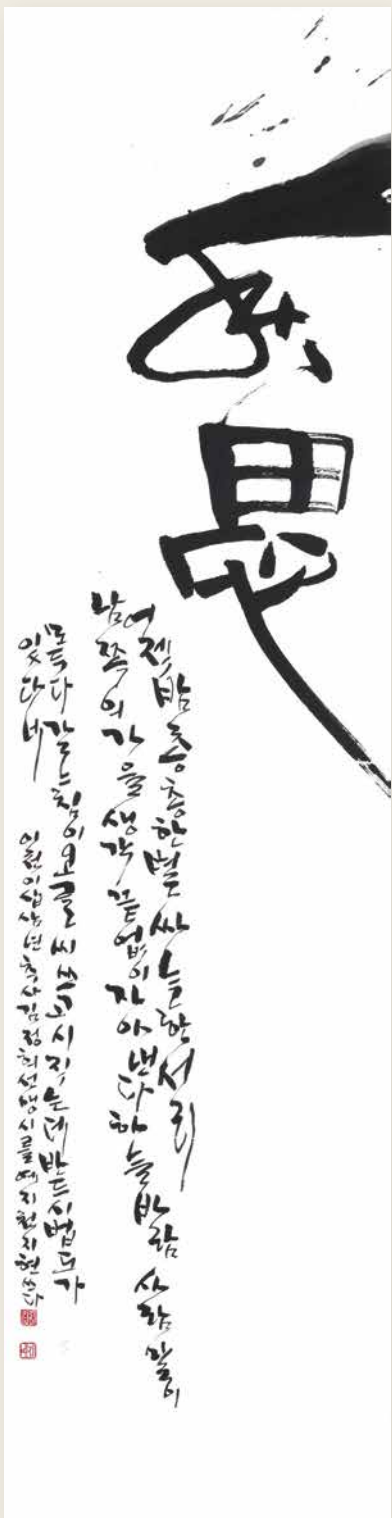 秋思
어젯밤 총총한 별 싸늘한 서리
남쪽의 가을 생각 끝없이 자아낸다 하늘 바람 사람
모두 다 글씨 쓰고 시 지는데 반드시 법도가
있다네
이천이십삼년 추사 김정희 선생 시를 지현 쓰다